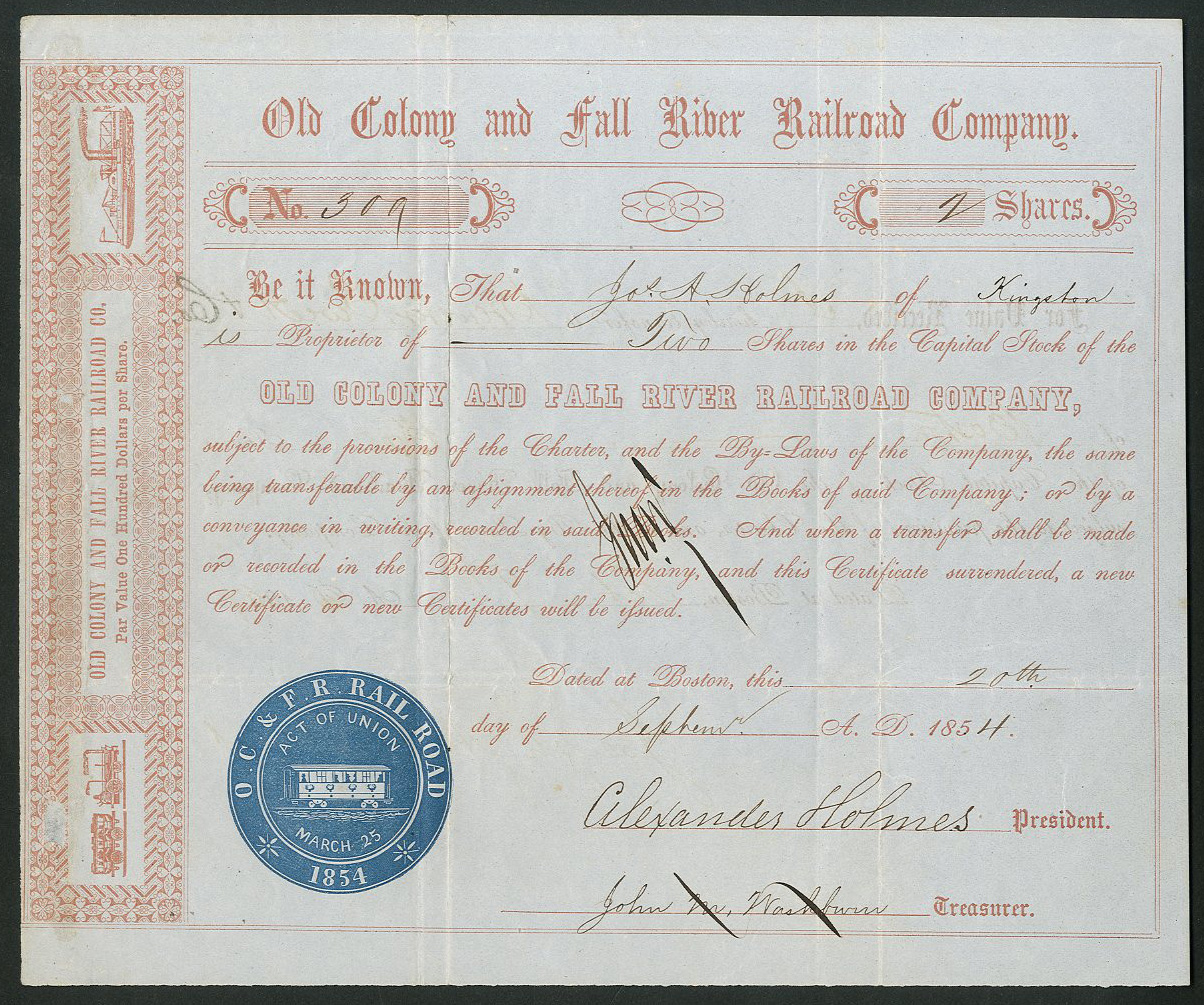 Old Colony and Fall River Railroad Company.
No. 309 2 Shares.
Be it Known, That Jos. A. Holmes of Kingston
is Proprietor of Two Shares in the Capital Stock of the
OLD COLONY AND FALL RIVER RAILROAD COMPANY,
subject to the provisions of the Charter, and the By=Laws of the Company, the same
being transferable by an assignment thereof in the Books of said Company; or by a
conveyance in writing, recorded in said Books. And when a transfer shall be made
or recorded in the Books of the Company, and this Certificate surrendered, a new
Certificate or new Certificates will be issued.
Dated at Boston, this 20th
day of Septemr. A. D. 1854.
Alexander Holmes President.
John M. Washburn Treasurer.
OLD COLONY AND FALL RIVER RAILROAD CO.
Par Value One Hundred Dollars per Share.
O. C. & F. R. RAIL ROAD
ACT OF UNION
MARCH 25
1854